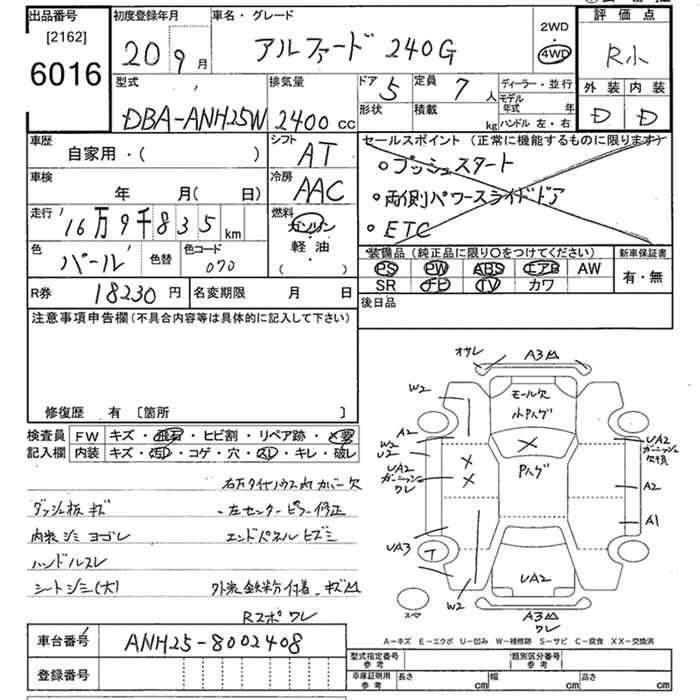 出品番号 初度登録年月 車名・グレード 評価点
[2162] 2WD
6016 20 9月 アルファード 240G 4WD R小
型式 排気量 ドア 5 定員 7人 ディーラー・並行 外装 内装
DBA-ANH25W 2400cc 形状 積載 kg モデル年式 年 D D
ハンドル 左・右
車歴 シフト セールスポイント (正常に機能するものに限ります)
自家用・( ) AT ・プッシュスタート
車検 冷房 ・両側パワースライドドア
年 月( 日) AAC ・ETC
走行 '16万9千835km 燃料 ガソリン
軽油
( )
色 パール 色替 色コード 070
装備品 (純正品に限り〇をつけてください) 新車保証書
PS PW ABS エアB AW 有・無
SR ナビ TV カワ
R券 18230円 名変期限 月 日 後日品
注意事項申告欄 (不具合内容等は具体的に記入して下さい)
修復歴 有 [箇所 ]
検査員 FW キズ・飛石・ヒビ割・リペア跡・×要
記入欄 内装 キズ・汚れ・コゲ・穴・スレ・キレ・破レ
右カタイヤハウス内カバー欠
ダッシュ板キズ 左センターピラー修正
内装シミヨゴレ エンドパネルヒズミ
ハンドルスレ
シートシミ(大) 外装鉄粉付着・キズ凹
Rスポワレ
車台番号 ANH25-8002408
登録番号
オサレ A3凹
W2 モール欠
小Pハゲ
A2 W2 U2
UA2 ガーニッシュワレ
Pハゲ
UA2 ガーニッシュ欠損
A2
A1
UA3
UA2
W2
スペア
A3凹
ワレ
A-キズ E-エクボ U-凹み W-補修跡 S-サビ C-腐食 XX-交換済
型式指定番号 参考 類別区分番号 参考
車庫証明用 参考 長さ cm 幅 cm 高さ cm